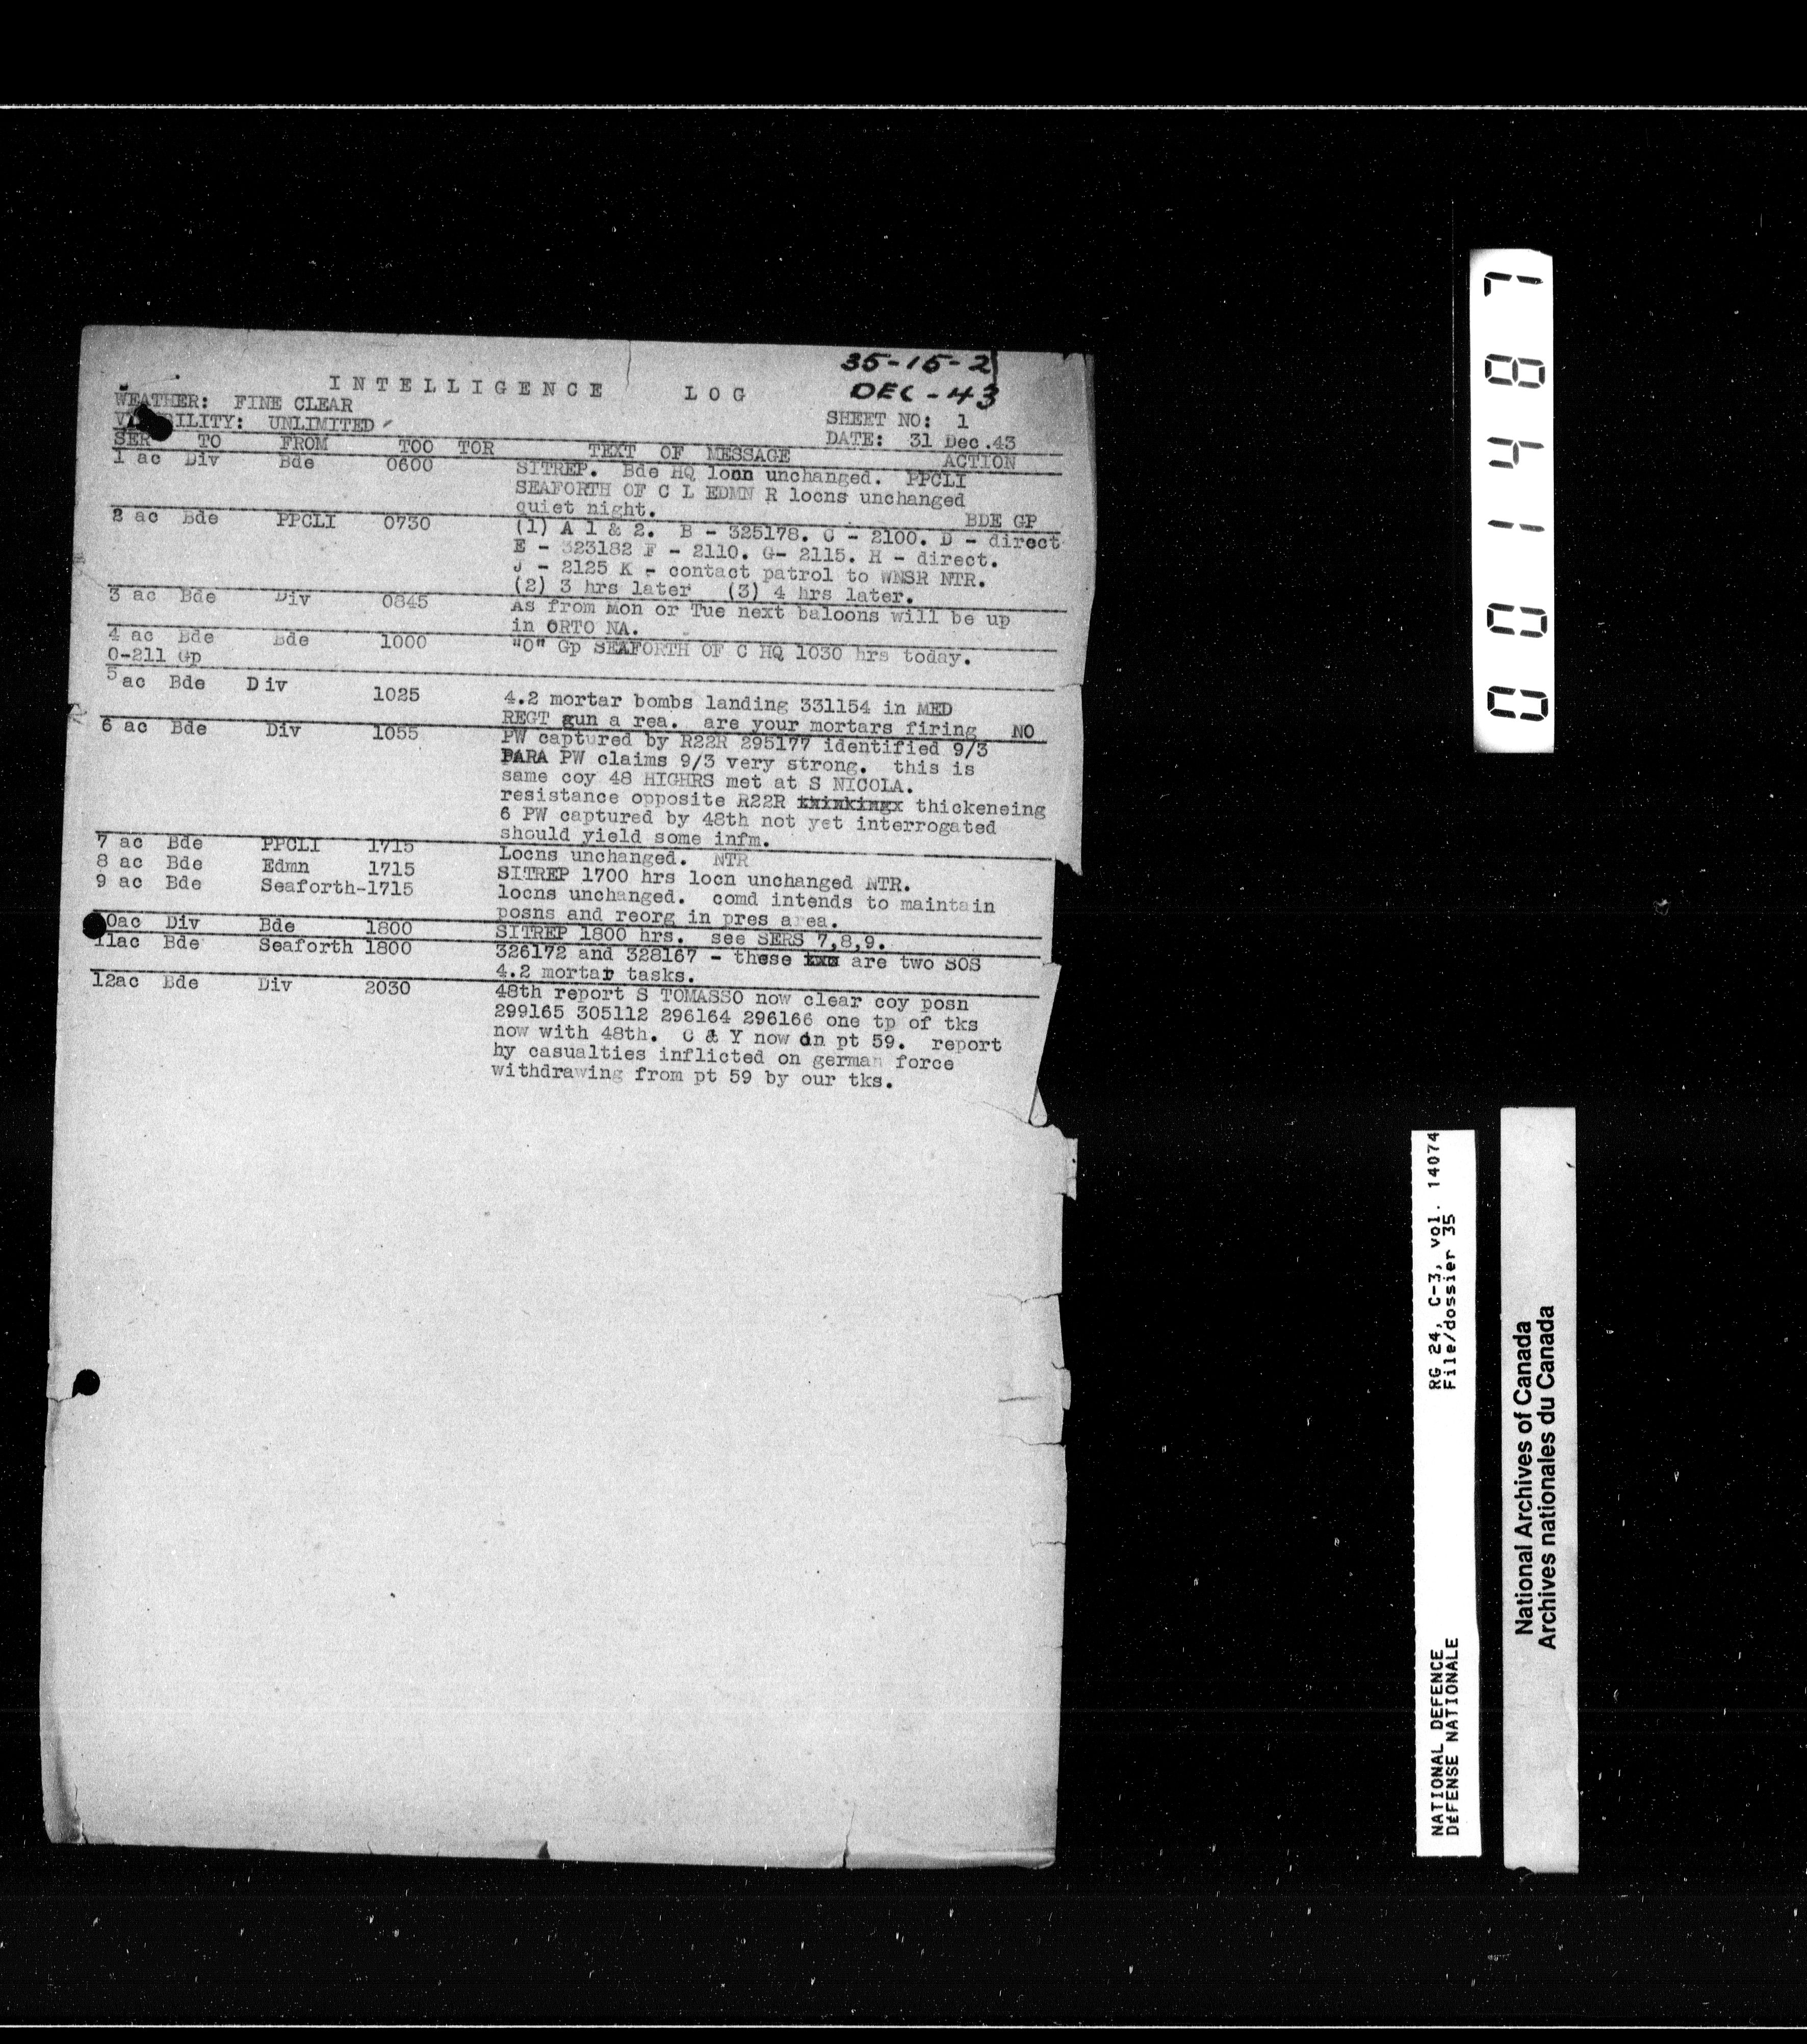 35-15-2
DEC-43
INTELLIGENCE LOG
WEATHER: FINE CLEAR
SHEET NO: 1
ILITY: UNLIMITED
DATE: 31 Dec.43
SER TO FROM TOO TOR TEXT OF MESSAGE ACTION
1 ac Div Bde 0600 SITREP. Bde HQ locn unchanged. PPCLI
SEAFORTH OF C L EDMN R locns unchanged
quiet night. BDE GP
2 ac Bde PPCLI 0730 (1) A 1 & 2. B - 325178. C - 2100. D - direct
E - 323182 F - 2110. G- 2115. H - direct.
J - 2125 K - contact patrol to WNSR NTR.
(2) 3 hrs later (3) 4 hrs later.
3 ac Bde Div 0845 As from Mon or Tue next baloons will be up
in ORTO NA.
4 ac Bde Bde 1000 "O" Gp SEAFORTH OF C HQ 1030 hrs today.
0-211 Gp
5 ac Bde Div 1025 4.2 mortar bombs landing 331154 in MED
REGT gun a rea. are your mortars firing NO
6 ac Bde Div 1055 PW captured by R22R 295177 identified 9/3
PARA PW claims 9/3 very strong. this is
same coy 48 HIGHRS met at S NICOLA.
resistance opposite R22R thinkingx thickeneing
6 PW captured by 48th not yet interrogated
should yield some infm.
7 ac Bde PPCLI 1715 Locns unchanged. NTR
8 ac Bde Edmn 1715 SITREP 1700 hrs locn unchanged NTR.
9 ac Bde Seaforth-1715 locns unchanged. comd intends to maintain
posns and reorg in pres area.
0ac Div Bde 1800 SITREP 1800 hrs. see SERS 7,8,9.
11ac Bde Seaforth 1800 326172 and 328167 - these are two SOS
4.2 mortar tasks.
12ac Bde Div 2030 48th report S TOMASSO now clear coy posn
299165 305112 296164 296166 one tp of tks
now with 48th. C & Y now on pt 59. report
hy casualties inflicted on german force
withdrawing from pt 59 by our tks.
001487
RG 24, C-3, vol. 14074
File/dossier 35
NATIONAL DEFENCE
DÉFENSE NATIONALE
National Archives of Canada
Archives nationales du Canada